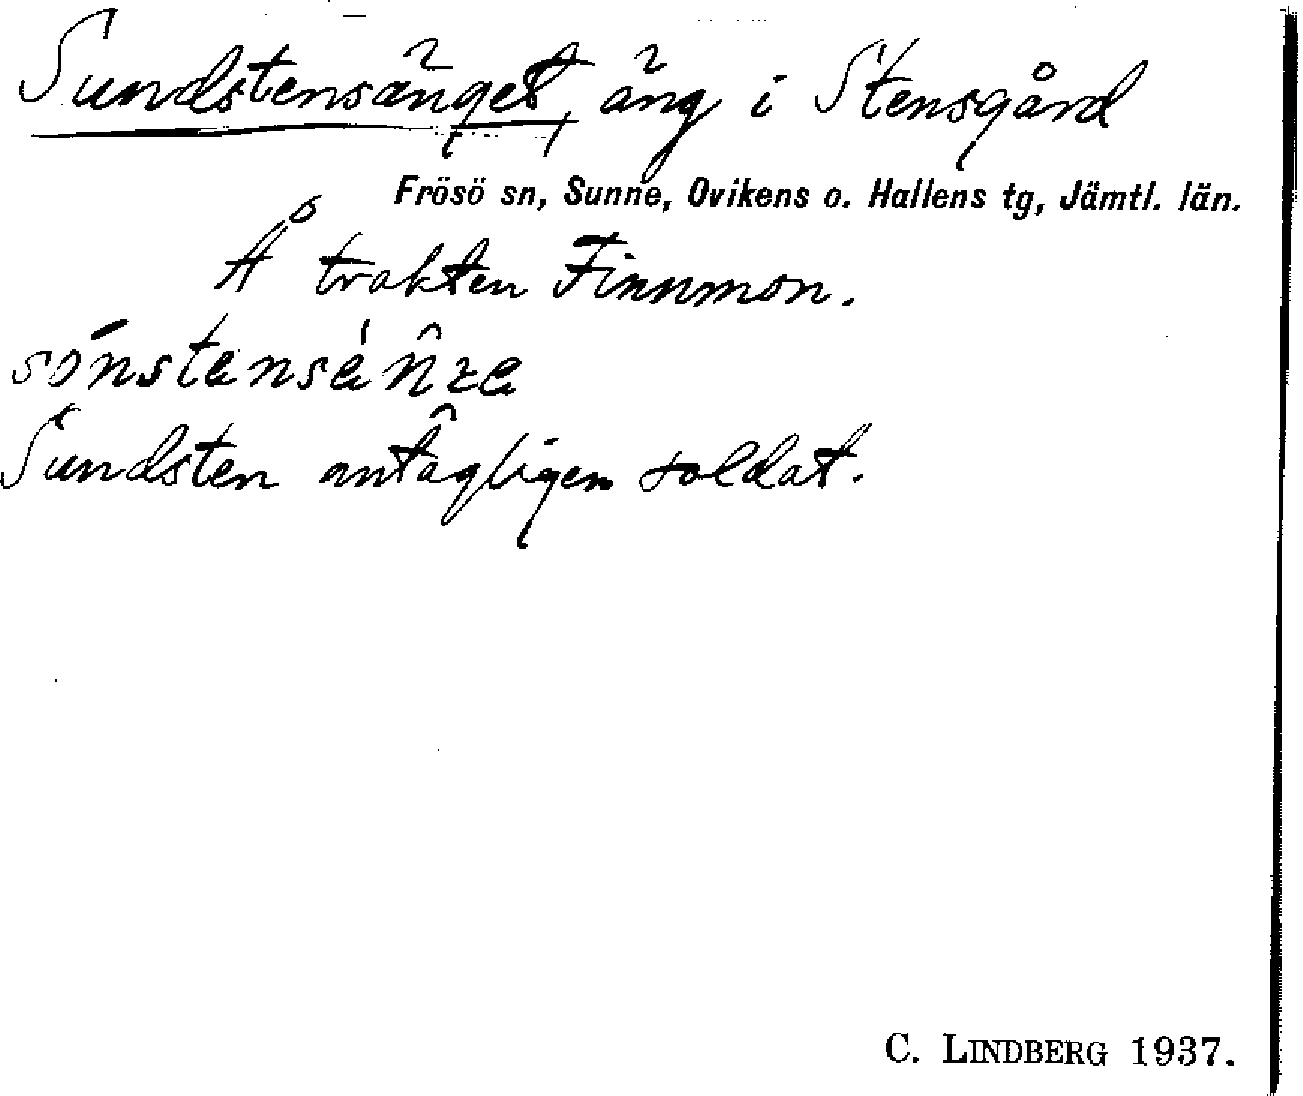 Sundstensänget, äng i Stensgård
Frösö sn, Sunne, Ovikens o. Hallens tg, Jämtl. län.
Å trakten Finnmon.
Sundsten antagligen soldat.
C. LINDBERG 1937.